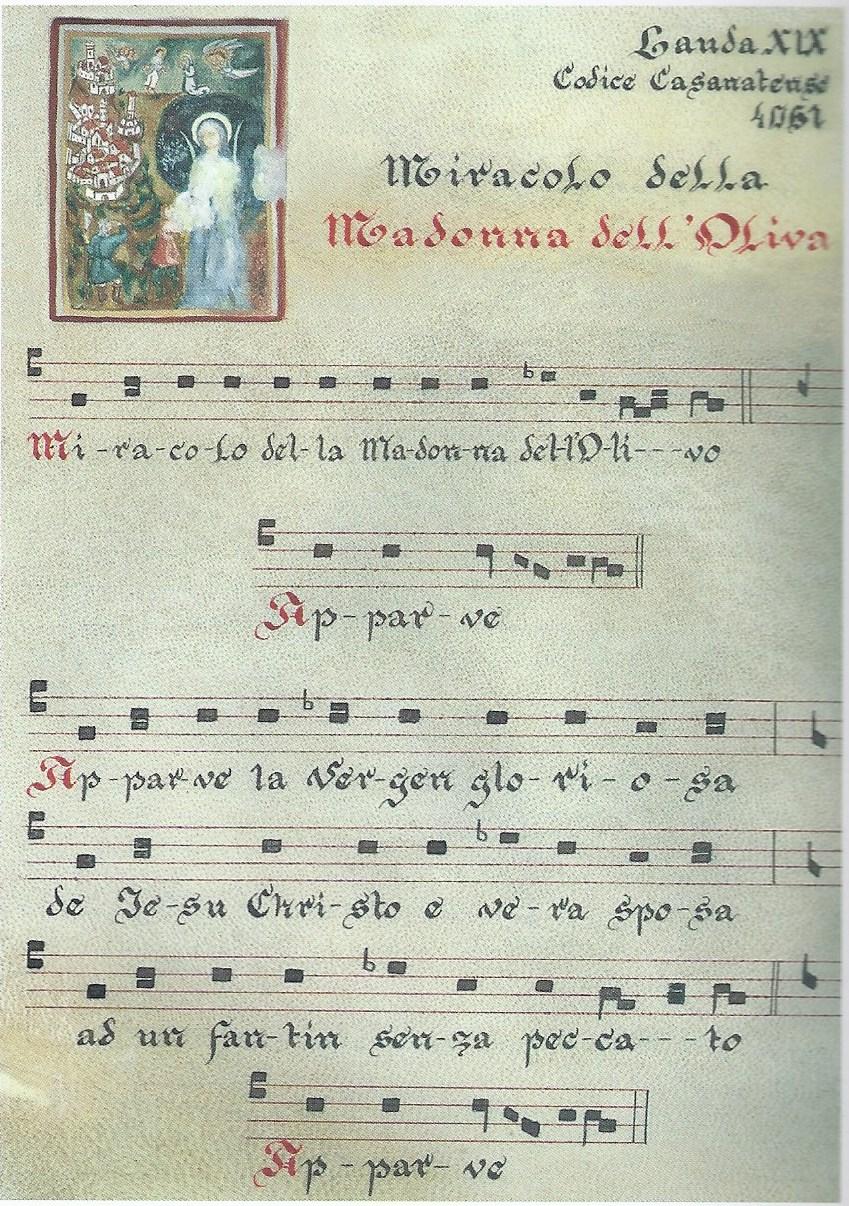 Lauda XIX
Codice Casanatense
4061
Miracolo della
Madonna dell'Oliva
Mi-ra-co-lo del-la Ma-don-na dell'O-li---vo
Ap-par-ve
Ap-par-ve la Ver-gen glo-ri-o-sa
de Je-su Chri-sto e ve-ra spo-sa
ad un fan-tin sen-za pec-ca---to
Ap-par-ve